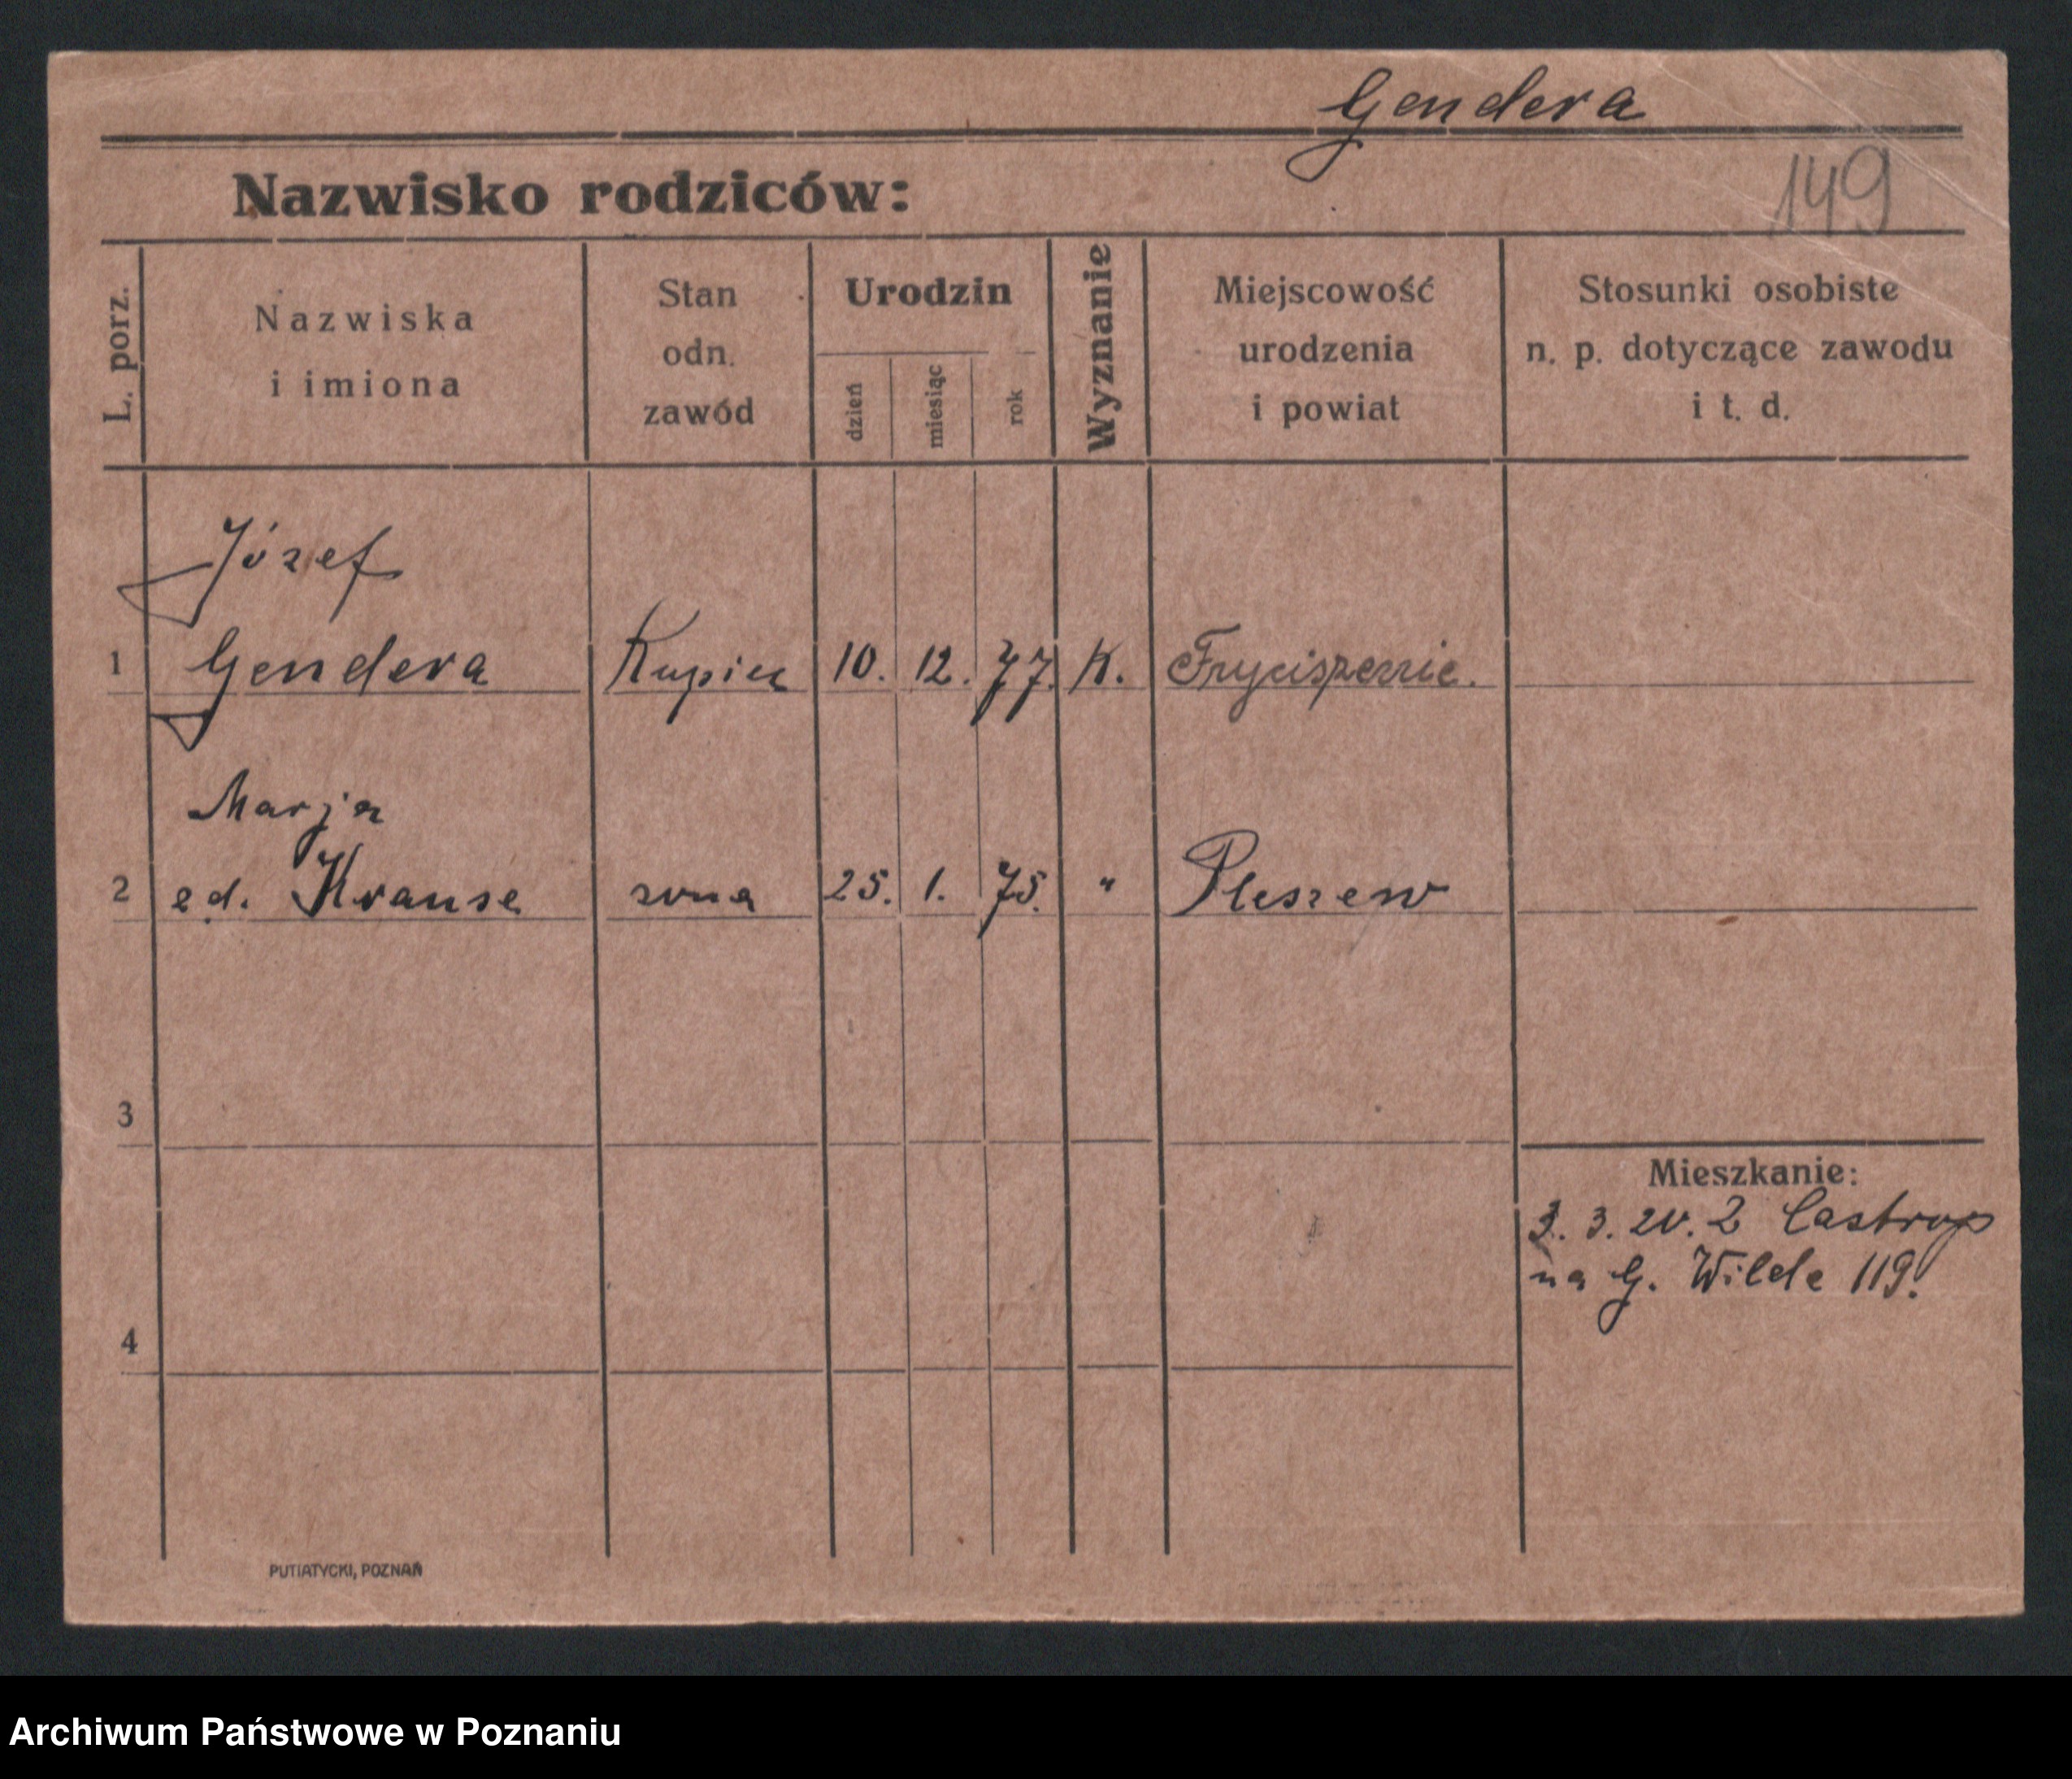 Gendera
149
Nazwisko rodziców:
L. porz.
Nazwiska
i imiona
Stan
odn.
zawód
Urodzin
dzień
miesiąc
rok
Wyznanie
Miejscowość
urodzenia
i powiat
Stosunki osobiste
n. p. dotyczące zawodu
i t. d.
Józef
1 Gendera Kupiec 10. 12. 77. K.
Marja
2 Krause 25. 1. 75. " Pleszew
3
Mieszkanie:
3. 20. Z Castrop
na G. Wilde 119.
4
PUTIATYCKI, POZNAŃ
Archiwum Państwowe w Poznaniu